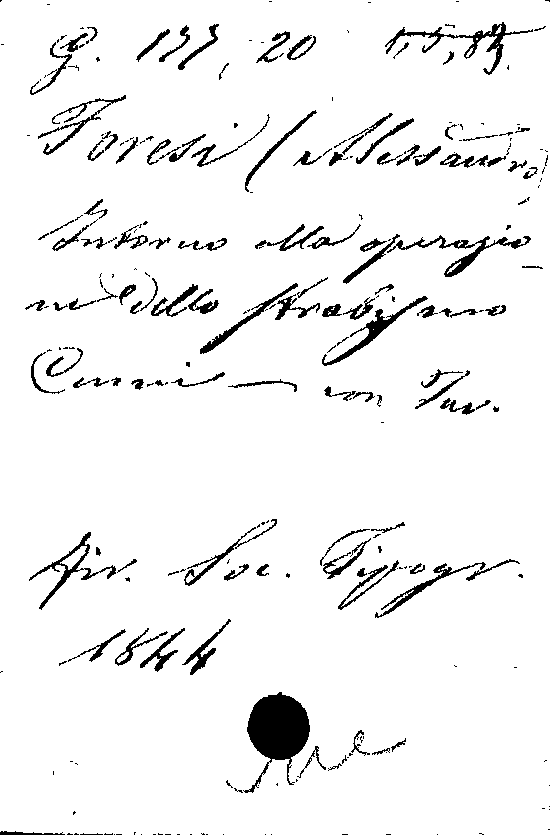 G. 177, 20 1,5,87.
Foresi (Alessandro)
Intorno alla operazio-
ne dello strabismo
Cenni — con Tav.
Fir. Soc. Tipogr.
1844